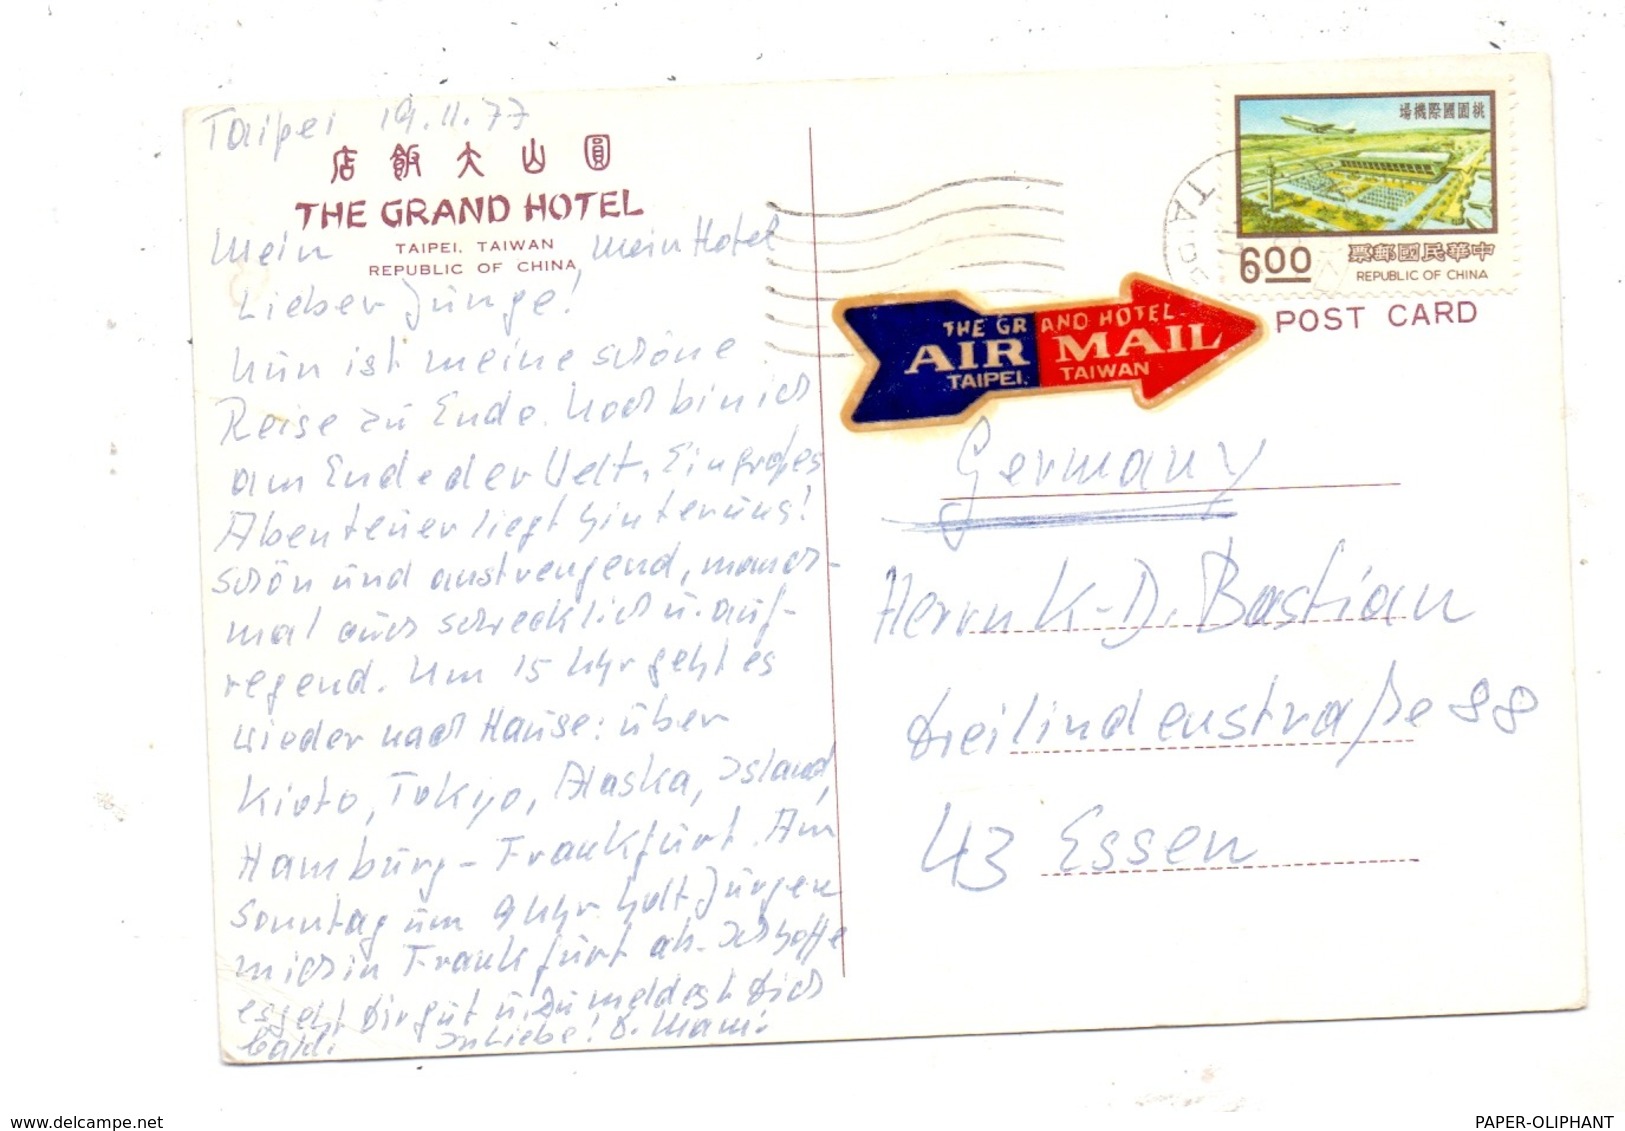 Taipei 19.11.77
圓山大飯店
THE GRAND HOTEL
TAIPEI, TAIWAN
REPUBLIC OF CHINA
Mein mein Hotel
Lieber Junge!
Nun ist meine schöne
Reise zu Ende. Noch bin ich
am Ende der Welt. Ein großes
Abenteuer liegt hinter uns!
Schön und anstrengend, manch-
mal auch schrecklich u. auf-
regend. Um 15 Uhr geht es
wieder nach Hause: über
Kioto, Tokijo, Alaska, Island,
Hamburg - Frankfurt. Am
Sonntag um 9 Uhr holt Jürgen
mich in Frankfurt ab. Ich hoffe
es geht Dir gut u. Du meldest Dich
bald. In Liebe! D. Mami.
桃園國際機場
6.00
中華民國郵票
REPUBLIC OF CHINA
TAIP
POST CARD
THE GRAND HOTEL
AIR MAIL
TAIPEI, TAIWAN
Germany
Herrn K-D. Bastian
Dreilindenstraße 88
43 Essen
PAPER-OLIPHANT
www.delcampe.net